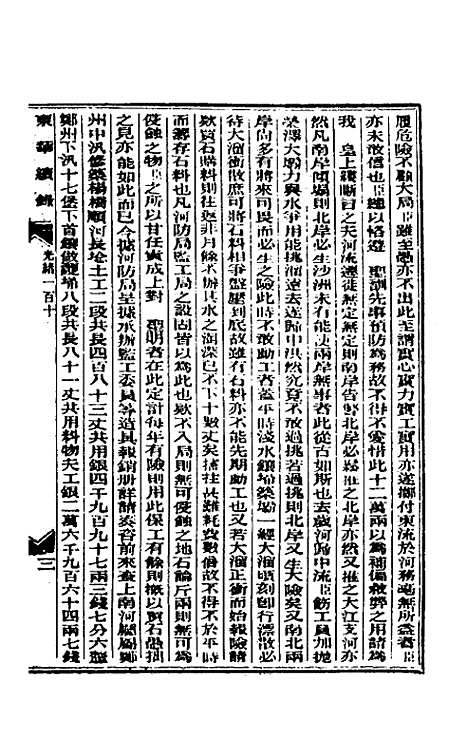 履危險不顧大局臣雖至愚亦不出此至謂實心實力實工實用亦遂鄉付東流於河務毫無所益者臣
亦未敢信也臣總以恪遵　聖訓先事預防為務故不得不愛惜此十二萬兩以為補偏救弊之用請為
我　皇上縷晰言之夫河流遷徙無定無定則南岸告警北岸必鬆推之北岸亦然又推之大江支河亦
然凡南岸傾塌則北岸必生沙洲未有能使兩岸無事者此從古如斯也去歲河歸中流臣飭工員加拋
滎澤大壩力與水爭用能挑溜遠去遂歸中洪然究竟不敢過挑若過挑則北岸又生大險矣又南北兩
岸尚多有將來可畏而必生之險此時不敢動工者蓋平時淺水鑲埽築壩一經大溜頃刻即行漂散必
待大溜衝散庶可將石料相爭盤壓到底故雖有石料亦不能先期動工也又若大溜正衝而始報險請
款買石購料則往返非月餘不辦其水之淘深已不下十數丈矣搶注甚難耗費數倍故不得不於平時
而籌存石料也凡河防局監工局之設固皆以為此也款不入局則無可侵蝕之地石論斤兩則無可為
侵蝕之物臣之所以甘任責成上對　聖明者在此定計每年有險則用此保工有餘則概以買石愚拙
之見亦能如此而已今據河防局呈據承辦監工委員等造具報銷册詳請奏咨前來查上南河廳屬鄭
州中汛修築楊橋順河長埝土工二段共長四百八十三丈共用銀四千九百九十七兩三錢七分六釐
鄭州下汛十七堡下首鑲做護埽八段共長八十一丈共用料物夫工銀二萬六千九百六十四兩七錢
東華續錄
光緒一百十
三